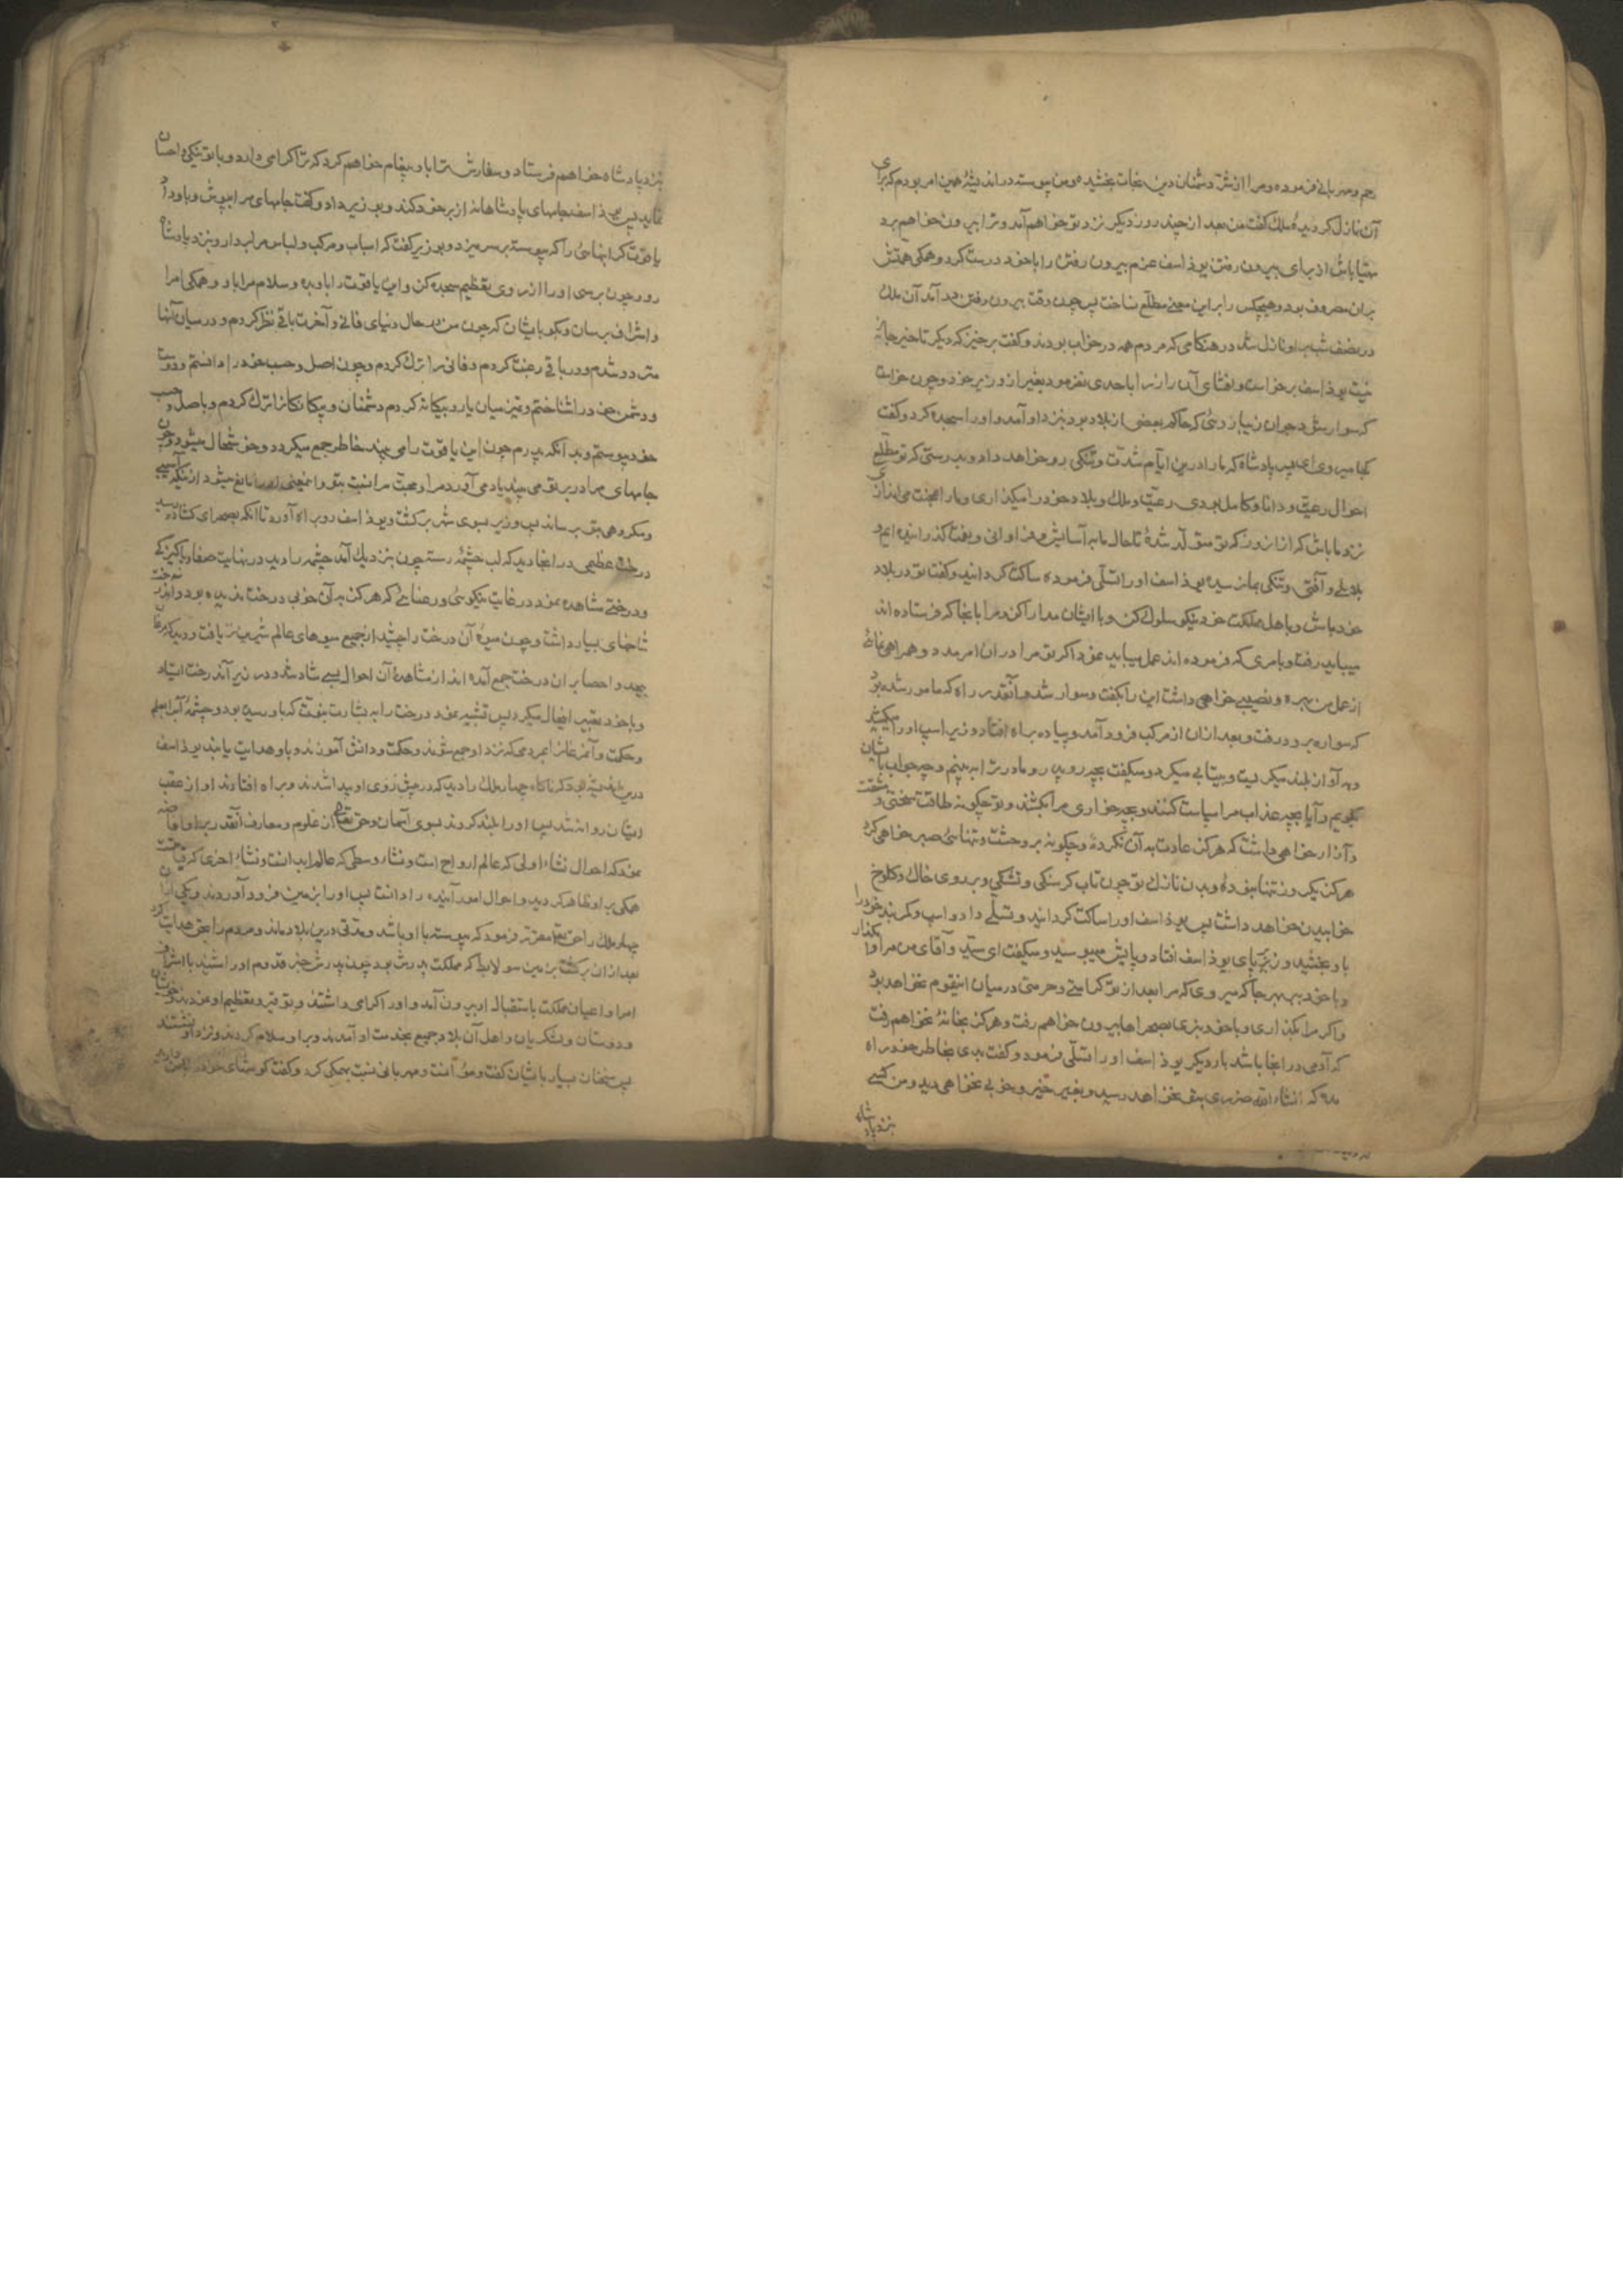 رحم و مهربانی فرموده و مرا از شرّ دشمنان دین نجات بخشیده و من پیوسته در اندیشهٔ همین امر بودم که برای
آن نازل کردیدهٔ ملك گفت من بعد از چند روز دیکر نزد تو خواهم آمد و ترا بیرون خواهم برد
مهیّا باش از برای بیرون رفتن یوذاسف عزم بیرون رفتن را با خود درست کرد و همکی همتش
بران مصروف بود و هیچکس را بر این معنی مطّلع نساخت پس چون وقت بیرون رفتن شد آمد آن ملك
در نصف شب بر او نازل شد در هنکامی که مردم همه در خواب بودند و کفت برخیز که دیکر تاخیر جایز
نیست یوذاسف برخواست و افشای آن راز را با احدی نفرمود بغیر از وزیر خود و چون خواست
که سوار شود جوان زیبا روئی که حاکم بعضی از بلاد بود بنزد او آمد و او را سجده کرد و کفت
کجا میروی ای پسر پادشاه که ما را درین ایّام شدّت و تنکی رو خواهد داد و بدرستی که تو مطّلع
احوال رعیّت و دانا و کامل بودی رعیّت و ملك و بلاد خود را میکذاری و ما را بمحنت می اندازی
نزد ما باش که از آن روز که تو متولّد شدهٔ تا حال ما به آسایش و فراوانی و رفت کذرانیده ایم و
بلائی و آفتی و تنکی بما نرسیده یوذاسف او را تسلّی فرموده ساکت کردانید و کفت تو در بلاد
خود باش و با اهل مملکت خود نیکو سلوك کن و با ایشان مدارا کن و مرا بانجا که فرستاده اند
میباید رفت و بامری که فرموده اند عمل میباید نمود اکر تو مرا در ان امر مدد و همراهی نمائی
از عمل من بهره و نصیبی خواهی داشت این را بکفت و سوار شد و آنقدر راه که مامور شده بود
که سواره برود رفت و بعد از ان از مرکب فرود آمد و پیاده براه افتاد و وزیر اسب او را میکشید
و به آواز بلند میکریست و بیتابی میکرد و میکفت بچه رو پدر و مادر ترا ببینم و چه جواب بایشان
بکویم و آیا بچه عذاب مرا سیاست کنند و بچه خواری مرا بکشند و تو چکونه طاقت سختی و مشقّت
و آزار خواهی داشت که هرکز عادت به آن نکردهٔ و چکونه بر وحشت و تنهائی صبر خواهی کرد
هرکز یك روز تنها نبودهٔ و بدن نازك تو چون تاب کرسنکی و تشنکی و بر روی خاك و کلوخ
خوابیدن خواهد داشت پس یوذاسف او را ساکت کردانید و تسلّی داد و اسب و کمربند خود را
باو بخشید و وزیر بپای یوذاسف افتاد و پایش میبوسید و میکفت ای سیّد و آقای من مرا وا مکذار
و با خود ببر بهر جا که میروی که مرا بعد از تو کرامتی و حرمتی در میان اینقوم نخواهد بود
و اکر مرا بکذاری و با خود نبری بصحراها بیرون خواهم رفت و هرکز بخانهٔ نخواهم رفت
که آدمی در انجا باشد بار دیکر یوذاسف او را تسلّی فرمود و کفت بدی بخاطر خود راه
مده که انشاء الله ضرری بتو نخواهد رسید و بغیر خیر و خوبی نخواهی دید و من کسی
بنزد پادشاه
بنزد پادشاه خواهم فرستاد و سفارش ترا باو پیغام خواهم کرد که ترا کرامی دارد و با تو نیکی و احسان
نماید پس یوذاسف جامهای پادشاهانه از بر خود کند و بوزیر داد و کفت جامهای مرا بپوش و باو داد
یاقوت کرانبهائی را که پیوسته بر سر میزد و بوزیر کفت که اسباب و مرکب و لباس مرا بردار و بنزد پادشاه
رو و چون برسی او را از روی تعظیم سجده کن و این یاقوت را باو بده و سلام مرا باو و همکی امرا
و اشراف برسان و بکو بایشان که چون من در حال دنیای فانی و آخرت باقی نظر کردم و در میان آنها
متردد شدم و در باقی رغبت کردم و فانی را ترك کردم و چون اصل و حسب خود را دانستم و دوست
و دشمن خود را شناختم و تمیز میان یار و بیکانه کردم دشمنان و بیکانکانرا ترك کردم و باصل و حسب
خود پیوستم و بد انکه پدرم چون این یاقوت را می بیند خاطر جمع میکردد و خوشحال میشود و چون
جامهای مرا در بر تو می بیند یاد می آورد مرا و محبّت مرا نسبت بتو و اینمعنی او را مانع میشود از اینکه آسیبی
و مکروهی بتو برساند پس وزیر بسوی شهر برکشت و یوذاسف رو براه آورد تا آنکه بصحرای کشاده رسید
درخت عظیمی در انجا دید که لب چشمه رسته چون بنزدیك آمد چشمه را دید در نهایت صفا و پاکیزکی
و درختی مشاهده نمود در غایت نیکوئی و رعنائی که هرکز به آن خوبی درخت ندیده بود و آن درخت
شاخهای بسیار داشت و چون میوهٔ آن درخت را چشید از جمیع میوهای عالم شیرین تر یافت و دید که مرغان
بیحد و احصا بر ان درخت جمع آمده اند از مشاهدهٔ آن احوال بسی شاد شد و در زیر آندرخت ایستاد
و با خود تعبیر اینحال میکرد پس تشبیه نمود درخت را به بشارت نبوّت که باو رسیده بود و چشمهٔ آبرا بعلم
و حکمت و آن مرغانرا بمردمی که نزد او جمع شوند و حکمت و دانش آموزند و باو هدایت یابند یوذاسف
درین اندیشه بود که ناکاه چهار ملك را دید که در پیش روی او پیدا شدند و براه افتادند او از عقب
ایشان روانه شد پس او را بلند کردند بسوی آسمان و حق تعالی از علوم و معارف آنقدر بر او افاضه
نمود که احوال نشاء اولی که عالم ارواح است و نشاء وسطی که عالم ابدانست و نشاء اخری که قیامت
همکی بر او ظاهر کردید و احوال امور آینده را دانست پس او را بزمین فرود آوردند و یکی از آن
چهار ملك را حق تعالی مقرّر فرمود که پیوسته با او باشد و مدّتی درین بلاد ماند و مردم را بحق هدایت کرد
بعد از ان برکشت بزمین سولابط که مملکت پدرش بود چون پدرش خبر قدوم او را شنید با اشراف
امرا و اعیان مملکت باستقبال او بیرون آمد و او را کرامی داشتند و توقیر و تعظیم او نمودند و خویشان
و دوستان و لشکریان و اهل آن بلاد جمیع بخدمت او آمدند و بر او سلام کردند و نزد او نشستند
پس سخنان بسیار بایشان کفت و مؤانست و مهربانی نسبت بهمکی کرد و کفت کوشهای خود را بمن دارید